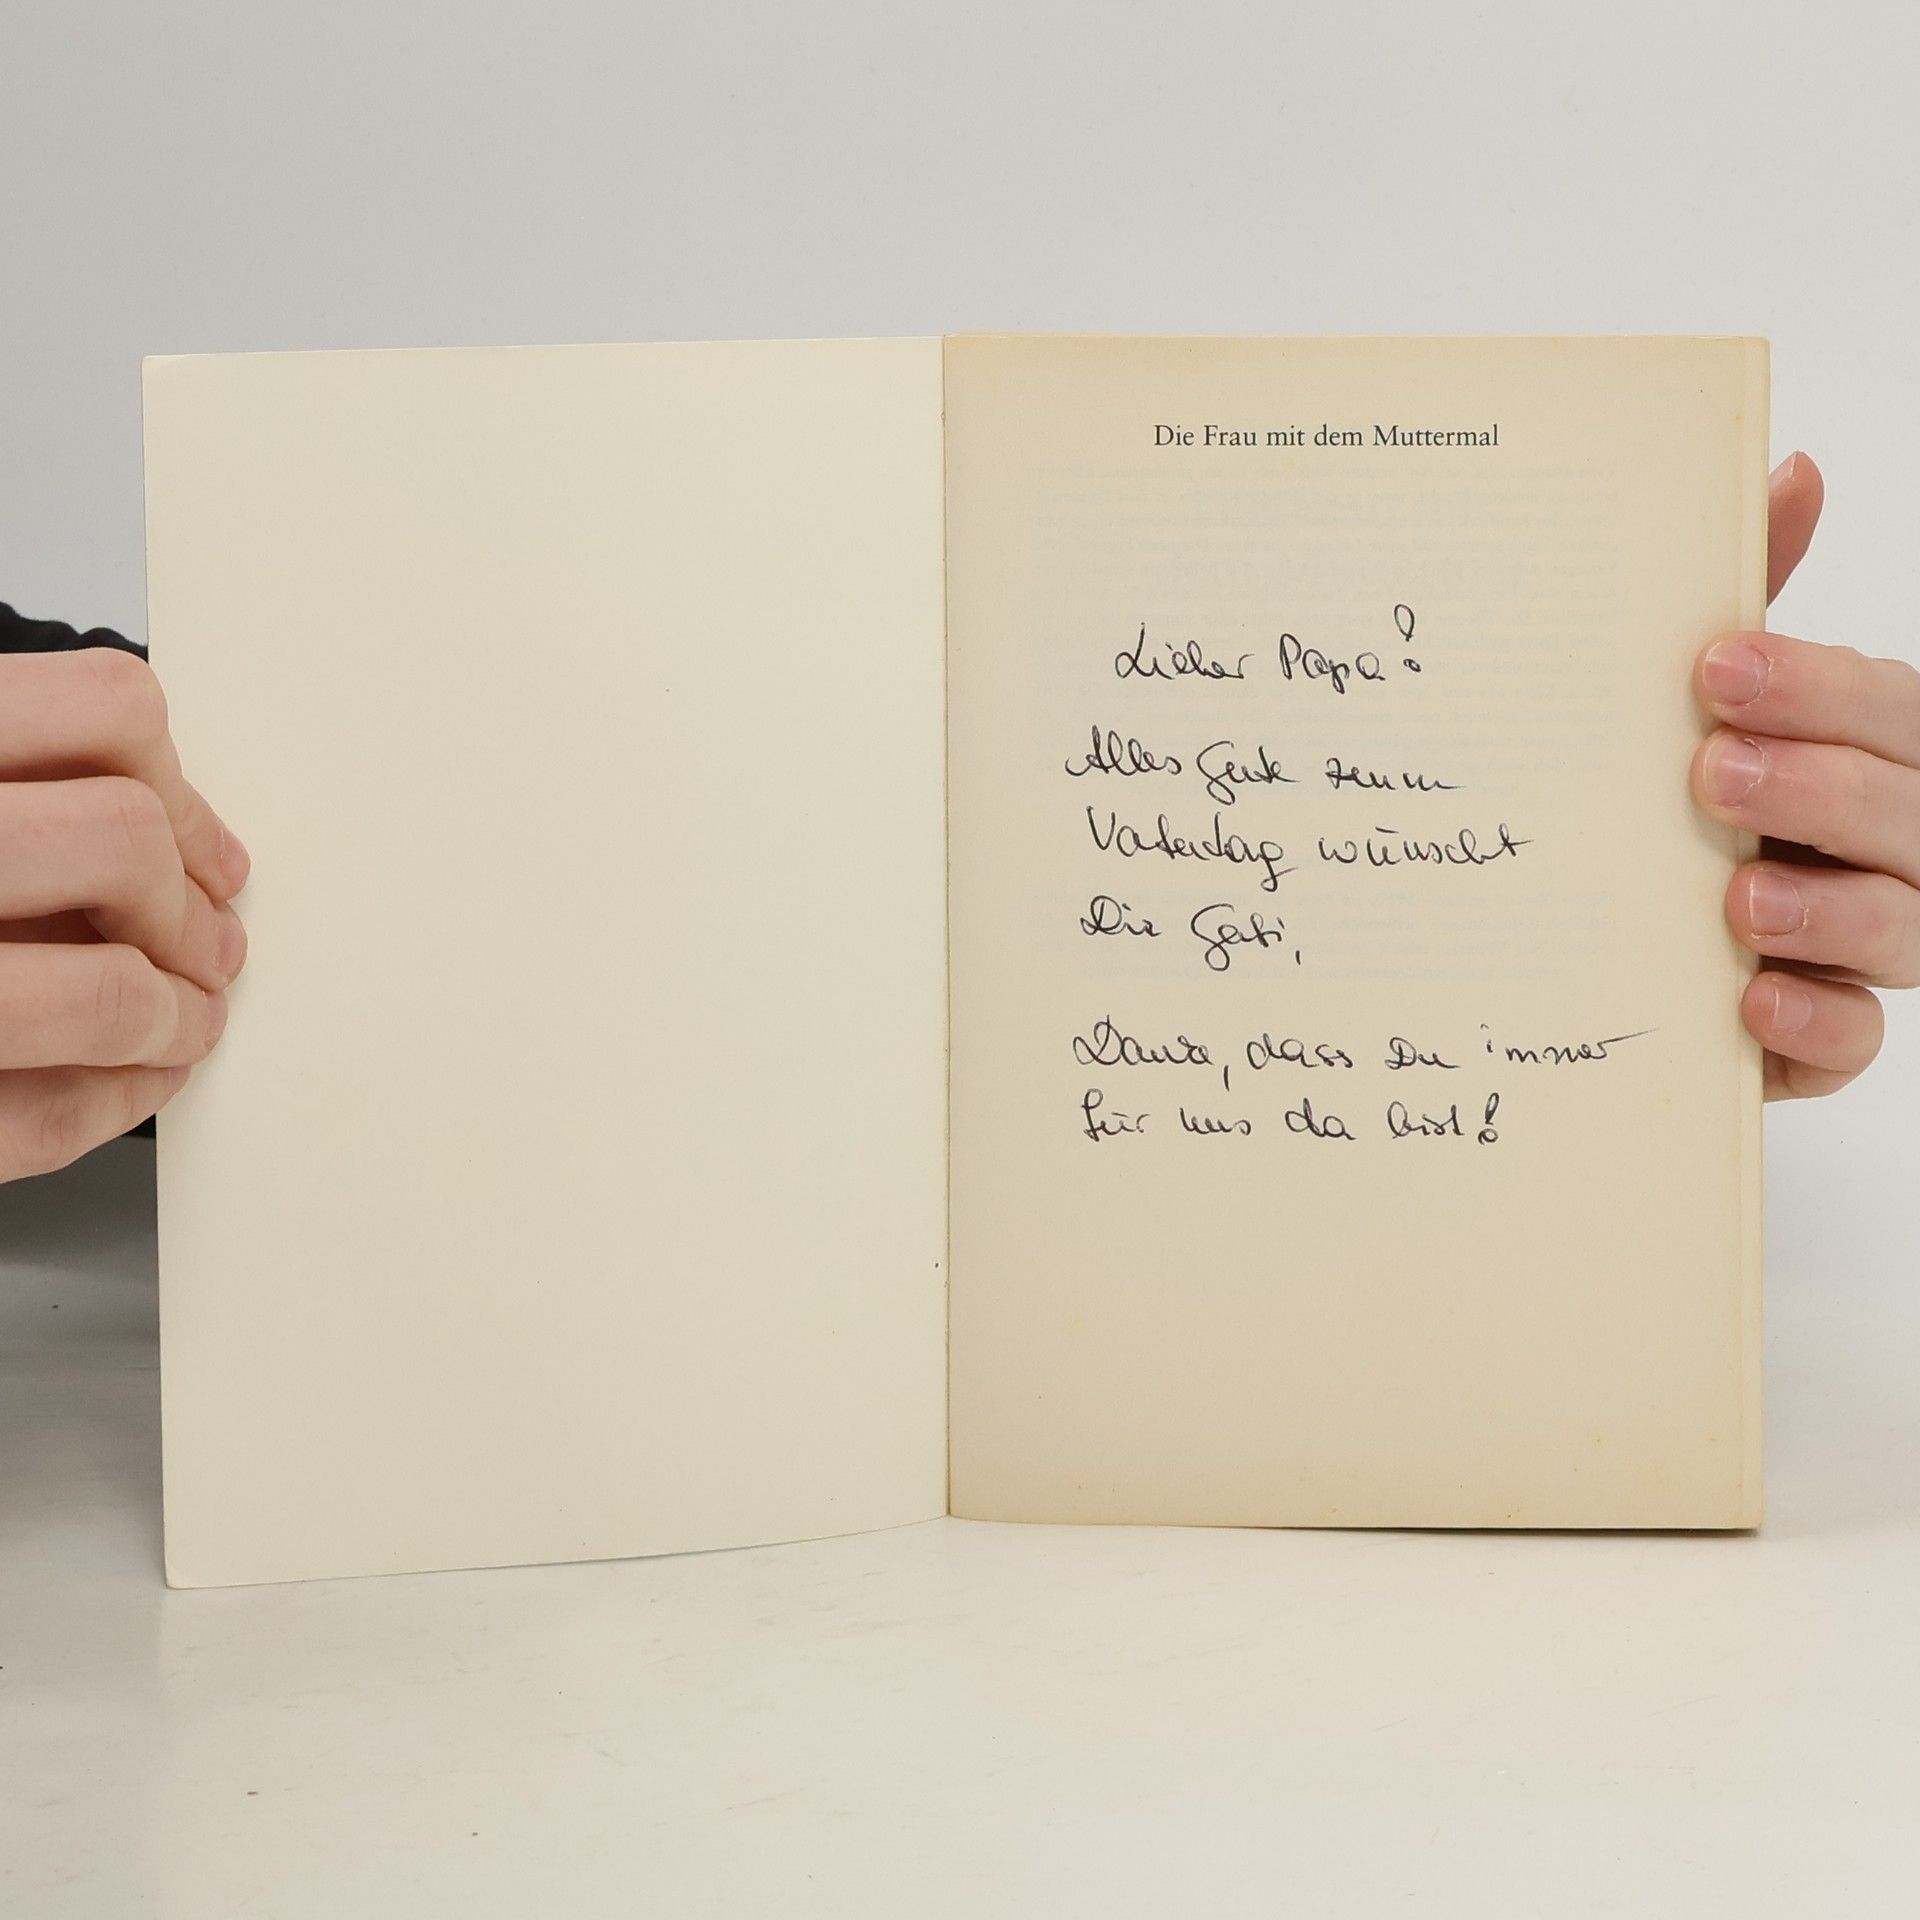 Die Frau mit dem Muttermal
Lieber Papa!
Alles Gute zum
Vatertag wünscht
Dir Gabi,
Danke, dass Du immer
für uns da bist!